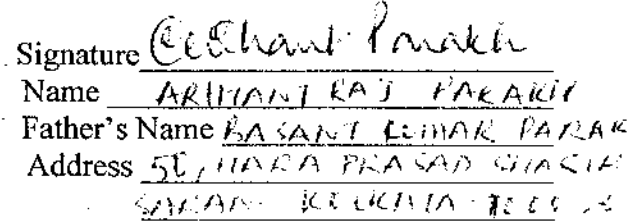 Signature
Name ARIHANT RAJ PARAKH
Father's Name BASANT KUMAR PARAK
Address 5C, HARA PRASAD
SARANI KOLKATA